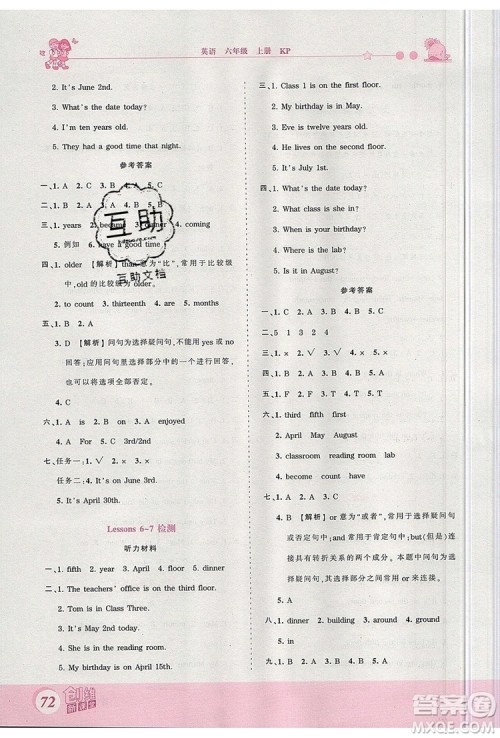 英语 六年级 上册 KP
2. It's June 2nd.
3. What's the date today?
4. I'm ten years old.
5. They had a good time that night.
参考答案
一、1. A 2. C 3. B 4. A 5. C
二、1. A 2. C
三、1. years 2. became 3. older 4. coming
5. 例如 6. have a good time
四、1. older 【解析】than 意为“比”,常用于比较级
中,old 的比较级为 older。
2. to count 3. thirteenth 4. are 5. months
五、1. B 2. A
3. D 【解析】问句为选择疑问句,不能用一般疑问句的
回答;应用问句中选择部分中的一个进行回答,
故整个句子应选 D。
4. C
六、1. are 2. is 3. an 4. is 5. enjoyed
4. A For 5. C
2. It's April 30th.
Lessons 6~7 检测
听力材料
一、1. fifth 2. year 3. April 4. floor 5. dinner
二、1. The teachers' office is on the third floor.
2. Tom is in Class Three.
3. It's May 2nd today.
4. She is in the reading room.
5. My birthday is in May.
三、1. Class 1 is on the first floor.
2. My birthday is in May.
3. Eve is twelve years old.
4. He lives on the second floor.
5. It's July 1st.
四、1. What's the date today?
2. What class is she in?
3. When is your birthday?
4. Where is the lab?
5. Is it in August?
参考答案
一、1. C 2. B 3. A 4. C 5. A
二、5 1 3 2 4
三、1. × 2. √ 3. √ 4. × 5. ×
四、1. B 2. A 3. A 4. B 5. A
五、1. F
六、1. third fifth first
2. April May August
3. classroom reading room lab
4. second become count
七、1. C 2. A 3. B
4. B 【解析】or 意为“或者”,常用于选择疑问句
或否定句中;and 常用于肯定句中;but(但是)连
接有转折关系的两个成分。本题中问句为选择疑
问句,其选择部分之间常用 or 来连接。
5. A
八、1. in 2. dinner 3. building 4. ground
5. used in
九、1. D 2. A 3. E 4. C 5. B
互助
互助文档
72
创维
新课堂
答案圈
MXQE.COM